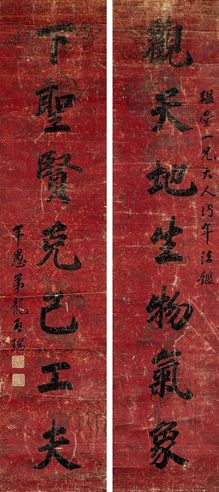 觀天地生物氣象
一兄大人同年法鑑
下聖賢克己工夫
年愚弟龍啟瑞